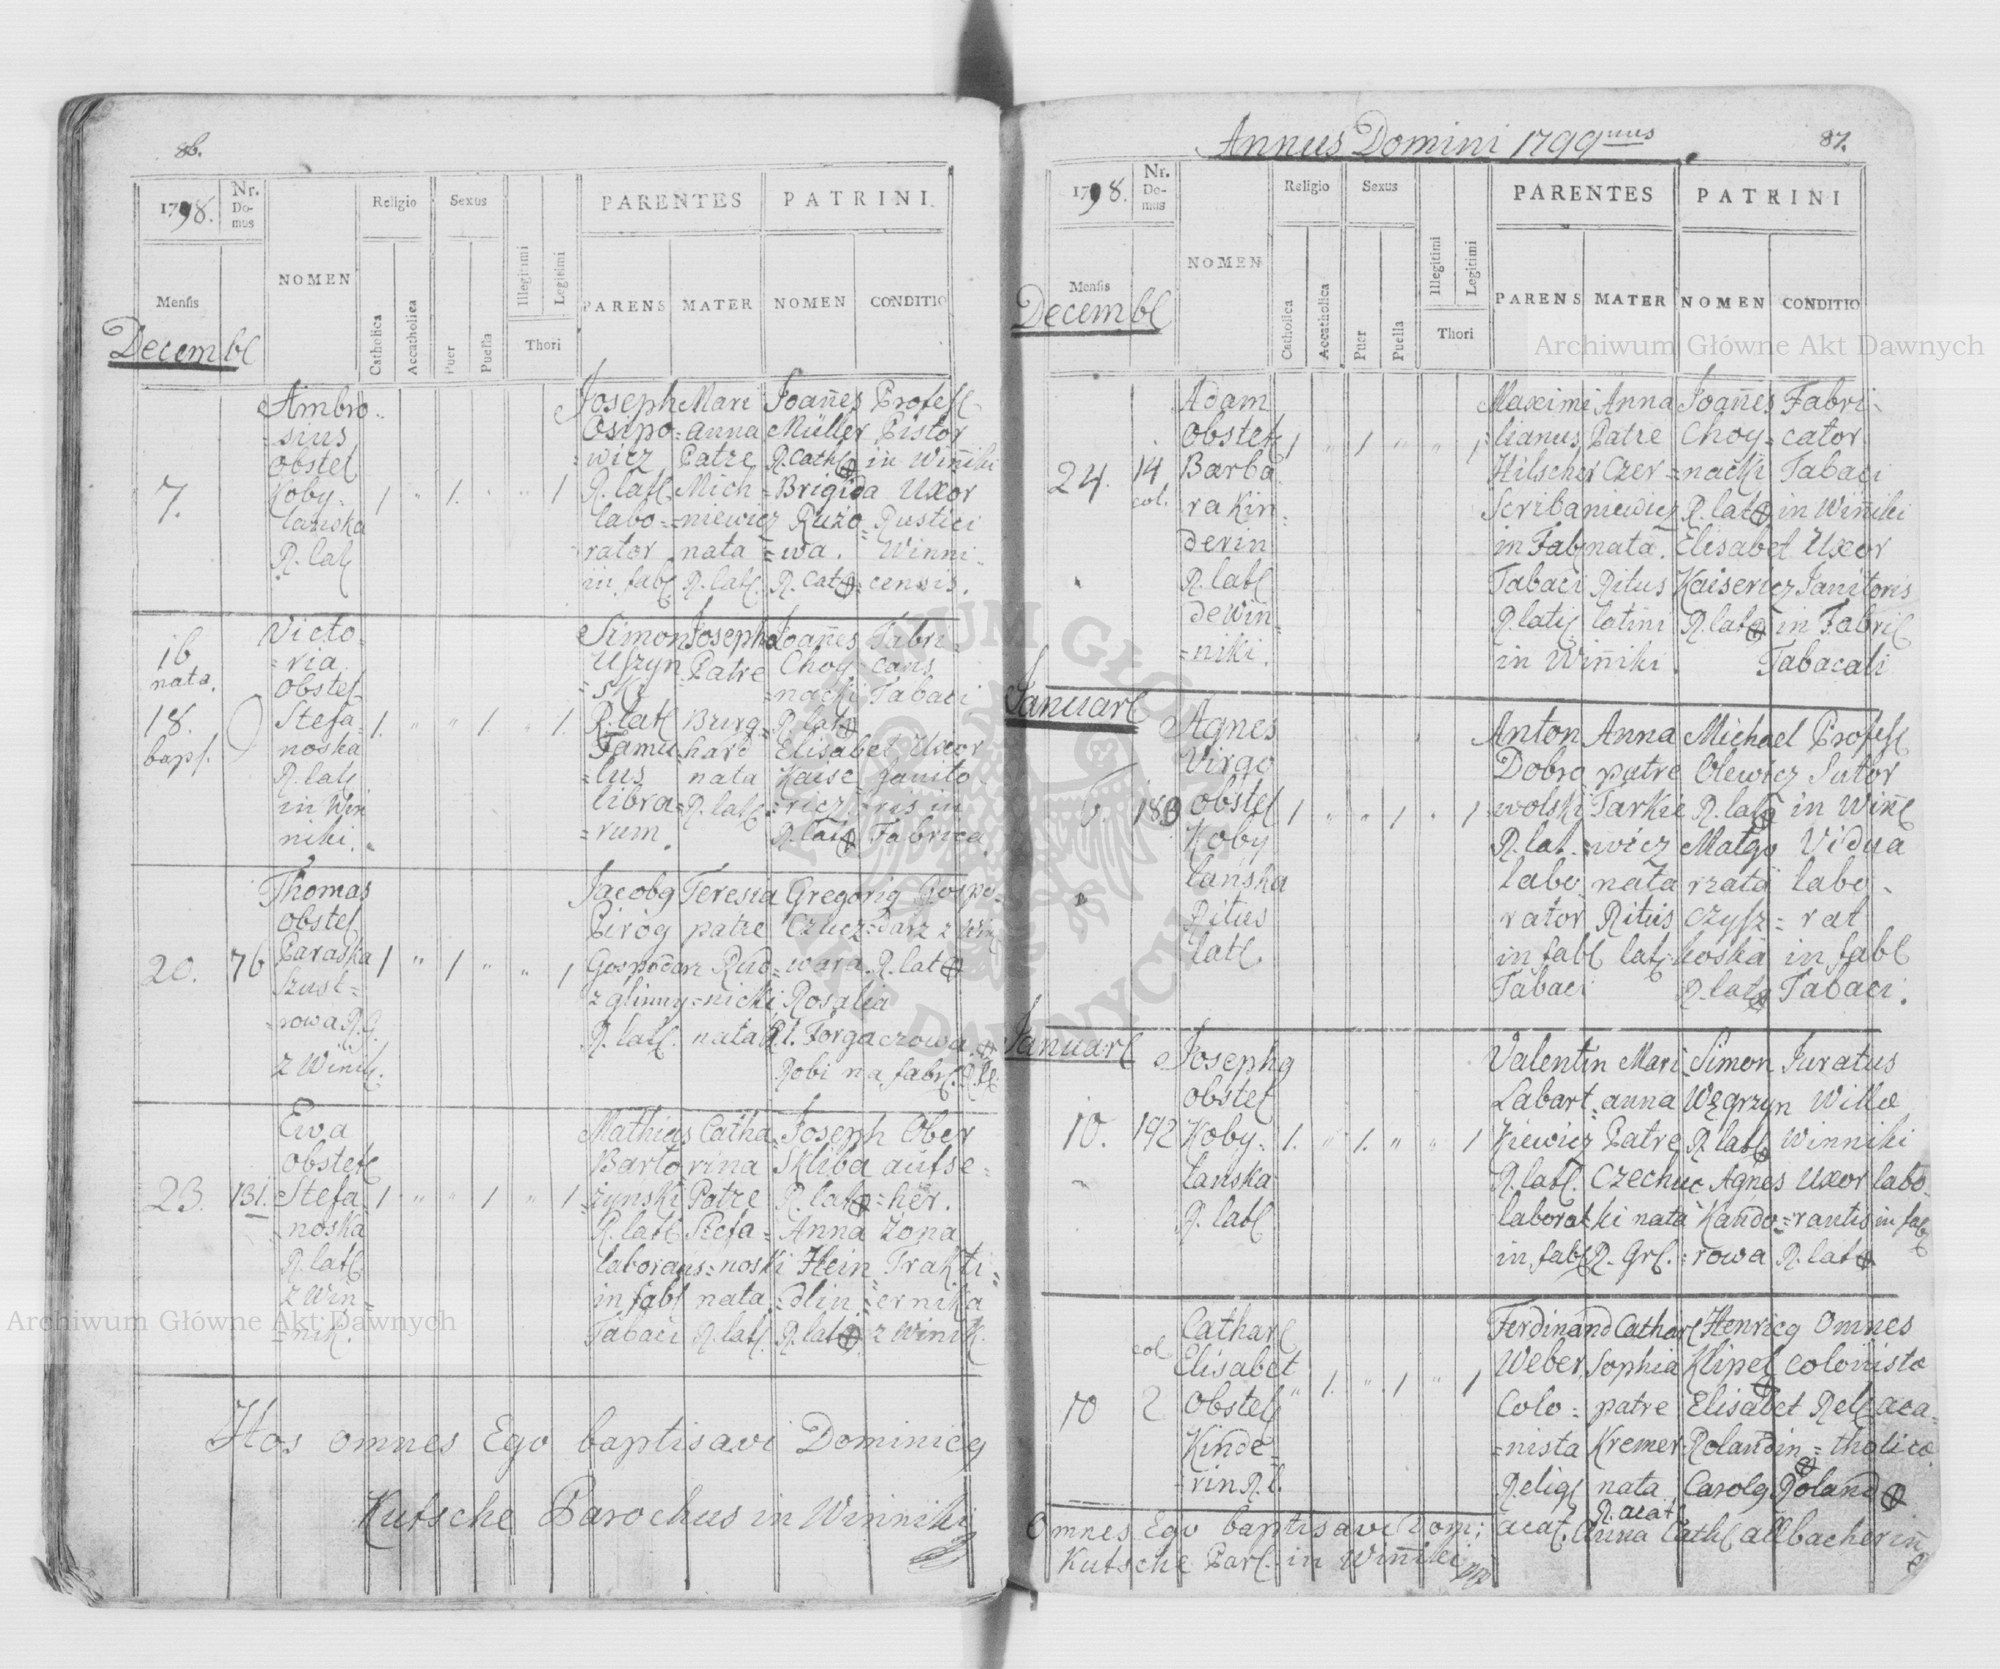 86.
1798.
Nr.
Do-
mus
NOMEN
Religio
Sexus
PARENTES
PATRINI.
Mensis
Catholica
Accatholica
Puer
Puella
Illegitimi
Legitimi
Thori
PARENS
MATER
NOMEN
CONDITIO
Decembr
7.
Ambro
=sius
obstet
Koby=
lanska
R. lat
1 " 1. " " 1
Joseph
Osipo=
=wicz
R. lat.
labo=
rator
in fabr
Mari
anna
Patre
Mich
=niewicz
nata
R. lat.
Joan̄es
Müller
R. Cath
Brigida
Ruzo=
=wa.
R. Cat
Profess
Pistor
in Win̄iki
Uxor
Rustici
Winni
censis.
16
nata.
18.
bapt.
Victo=
=ria
obstet
Stefa=
noska
R. lat
in Win
niki.
1. " " 1. " 1.
Simon
Uszyn
=ski
R. lat
Famu
=lus
libra=
=rum.
Josepha
Patre
Burg=
hard
nata
R. lat
Joan̄es
Choy
=nacki
R. lat
Elisabet
Kaise
=ricz
R. lat
Fabri
cans
Tabaci
Uxor
Janito
ris in
Fabrica.
20.
76
Thomas
obstet
Paraska
Szust=
=rowa R. G.
z Winik.
1 " 1 " " 1
Jacobg
Pirog
Gospodarz
z glinny
R. lat.
Teresia
patre
Rud=
=nicki
nata R. l.
Gregorig
Czucz=
wara
Rosalia
Forgaczowa
Robi na fabr.
Gospo=
=darz z Win
R. lat
23.
131.
Ewa
obstet
Stefa
=noska
R. lat
z Win=
=nik.
1 " " 1 " 1
Mathias
Barto
=zynski
R. lat
laborans
in fabr
Tabaci
Catha=
rina
Patre
Stefa=
=noski
nata
R. lat.
Joseph
Skliba
R. lat
Anna
Hein=
=dlin
R. lat
Ober
aufse=
=her.
Zona
Trakti=
=ernika
z Winik.
Hos omnes Ego baptisavi Dominicg
Kutsche Parochus in Winniki
Annus Domini 1799nus
87.
1798.
Nr.
Do-
mus
NOMEN
Religio
Sexus
PARENTES
PATRINI
Mensis
Catholica
Accatholica
Puer
Puella
Illegitimi
Legitimi
Thori
PARENS
MATER
NOMEN
CONDITIO
Decembr
24.
14
col.
Adam
obstet
Barba
ra Kin=
derin
R. lat
de Win̄=
=niki.
1 " 1. " " 1
Maximi
=lianus
Hilscher
Scriba
in Fab
Tabaci
R. lati
in Win̄iki.
Anna
Patre
Czer=
niewicz
nata.
Ritus
latini
Joan̄es
Choy=
=nacki
R. lat
Elisabet
Kaisericz
R. lat
Fabri=
cator
Tabaci
in Win̄iki
Uxor
Janitoris
in Fabric
Tabacali
Januar
6.
180
Agnes
Virgo
obstet
Koby
lanska
Ritus
lat
1 " " 1 " 1
Anton
Dobro
wolski
R. lat.
labo
rator
in fabr
Tabaci
Anna
patre
Tarkie
=wicz
nata
Ritus
lat
Michael
Olewicz
R. lat
Malgo
rzata
czysz=
koska
R. lat
Profess
Sutor
in Win̄
Vidua
labo=
rat
in fabr
Tabaci.
Januar
10.
192
Josephg
obstet
Koby=
lanska
R. lat
1. " 1. " " 1
Valentin
Labart=
Kiewicz
R. lat.
laborat
in fabr
Mari
anna
Patre
Czechuc
ki nata
R. Gr.
Simon
Węgrzyn
R. lat
Agnes
Kando=
=rowa
Juratus
Willæ
Winniki
Uxor labo
=rantis in fab
R. lat
10
col
2
Cathar
Elisabet
Obstet
Kinde=
rin R. l.
" 1. " 1 " 1
Ferdinand
Weber
Colo=
=nista
Relig
acat.
Cathar
Sophia
patre
Kremer
nata
R. acat
Henricg
Klipel
Elisabet
Rolandin
Carolg Roland
Anna Cath allbacherin̄
Omnes
colonistæ
Rel aca=
=tholicæ
Omnes Ego baptisavi Domi;
Kutsche Par. in Win̄iki
Archiwum Główne Akt Dawnych
Archiwum Główne Akt Dawnych